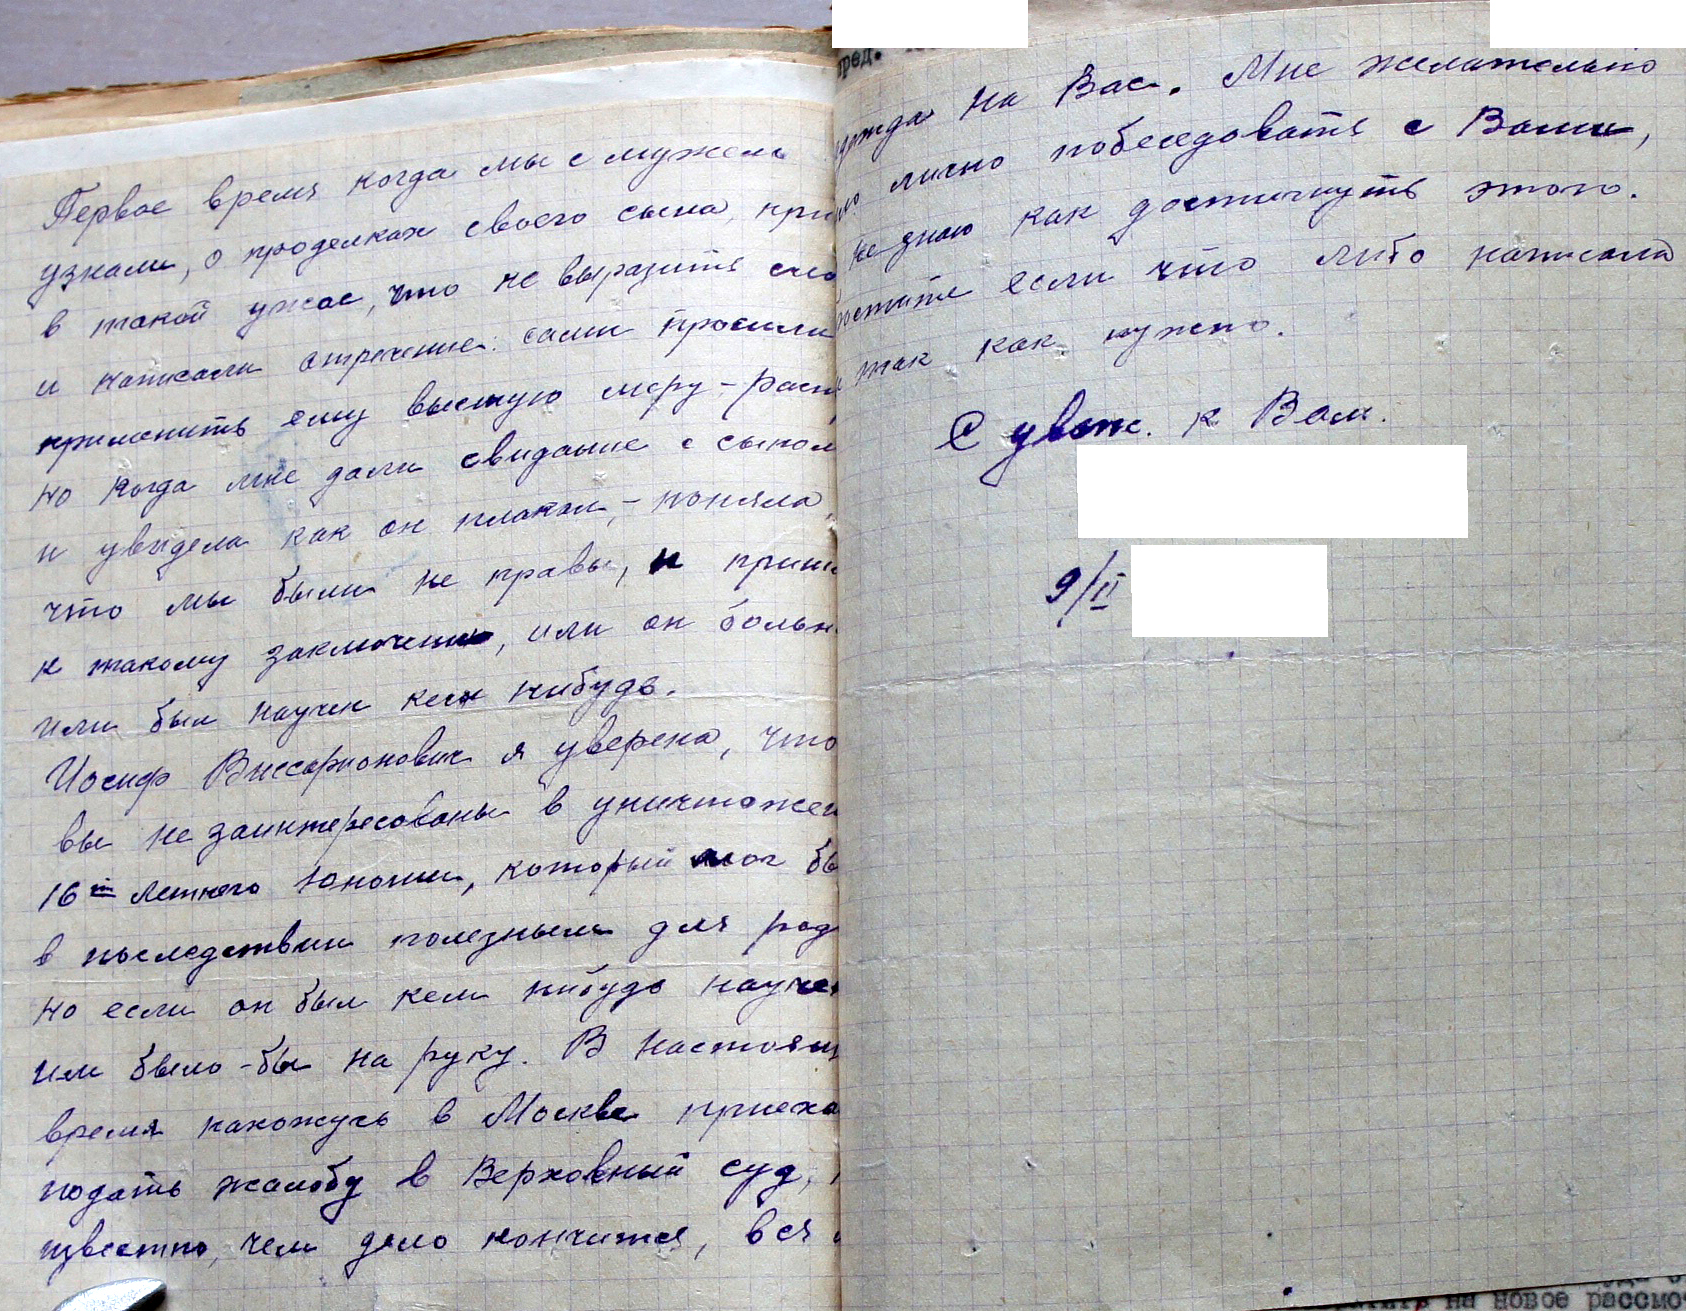 Первое время когда мы с мужем
узнали, о проделках своего сына, при
в такой ужас, что не выразить сло
и написали отречение: сами просили
применить ему высшую меру - расс
но когда мне дали свидание с сыном
и увидела как он плакал, - поняла,
что мы были не правы, и приш
к такому заключению, или он больн
или был научен кем нибудь.
Иосиф Виссарионович я уверена, что
вы не заинтересованы в уничтожен
16ти летнего юноши, который мог бы
в последствии полезным для род
но если он был кем нибудь научен
им было-бы на руку. В настоящ
время нахожусь в Москве приеха
подать жалобу в Верховный суд,
известно, чем дело кончится, вся
пред.
дежда на Вас. Мне желательно
лично побеседовать с Вами,
не знаю как достигнуть этого.
остите если что либо написала
так как нужно.
С уваж. к Вам.
9/II
на новое рассмо